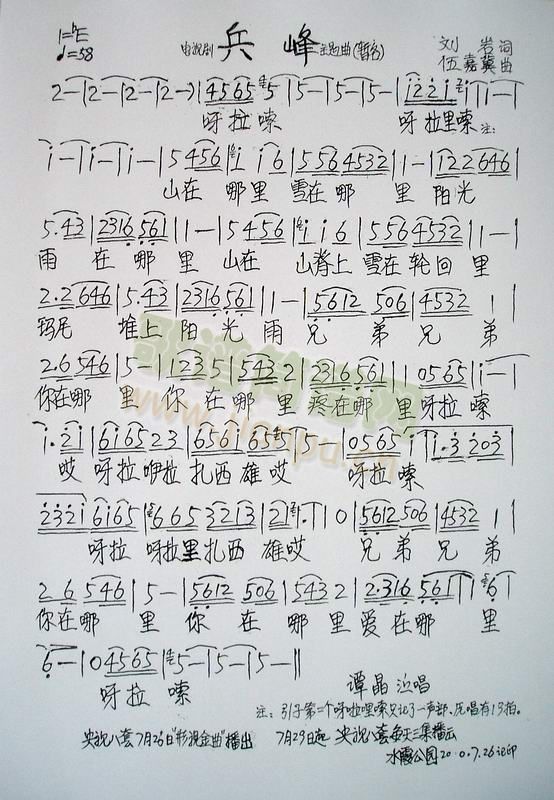 1=♭E
♩=58
电视剧 兵峰 主题曲(暂名)
刘岩 词
伍嘉冀 曲
2―|2―|2―|2―)|4565 5|5―|5―|5―|i22i i|i―|
呀拉嗦 呀拉里嗦 注:
i―|i―|i―|5 456|i i6|556 4532|1―|122646|
山在 哪里 雪在哪 里 阳光
5.43|2316 561|1―|5 456|i i6|556 4532|1―|
雨 在 哪 里 山在 山脊上 雪在轮回 里
2.2646|5.43|2316 561|1―|5612 506|4532 11|
玛尼 堆上 阳光 雨 兄 弟兄 弟
2.6 546|5―|1235|5432|2316 561|1 0565|i―|
你在哪 里 你 在哪 里 疼在哪 里呀拉 嗦
i.2i|6i6523|656i 65|5.|0565|i|1.3 203|
哎 呀拉咿拉 扎西 雄哎 呀拉 嗦
232i|6i65|665 3213|21.|10|5612 506|4532 11|
呀拉 呀拉里扎西 雄哎 兄弟兄 弟
26 546|5―|5612 506|5432|2.316 561|6|
你在哪 里 你 在 哪 里爱在哪 里
6―|04565|5―|5―|5―‖
呀拉 嗦
谭晶 演唱
注:引子第二个呀拉里嗦只记了一声部、原唱有13拍。
央视八套7月26日"影视金曲"播出 7月29日起 央视八套每天三集播出
水霞公园2010.7.26记印
www.jianpu.cn